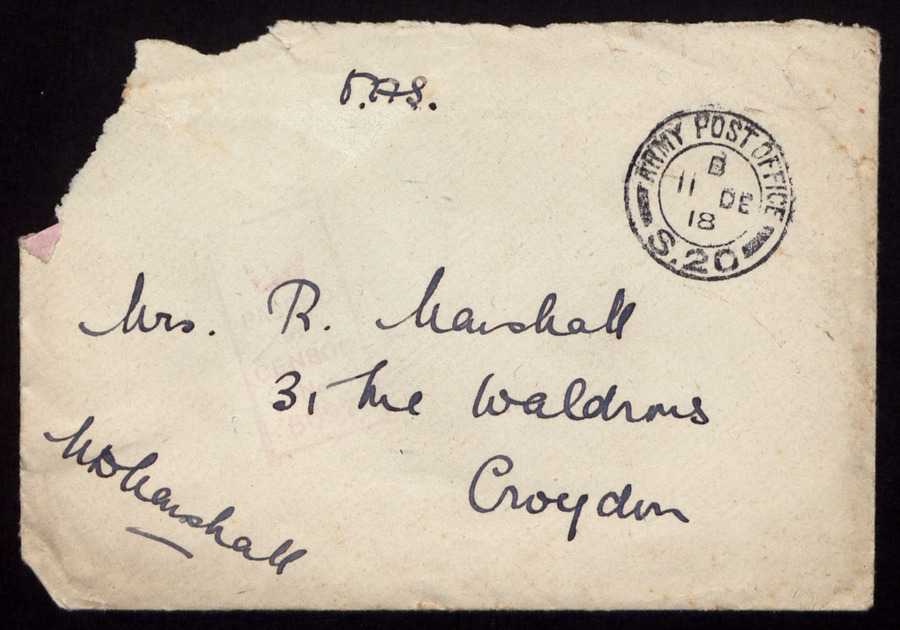 O.A.S.
ARMY POST OFFICE
B
11 DE
18
S.20
Mrs. R. Marshall
31 The Waldrons
Croydon
CENSOR
Marshall